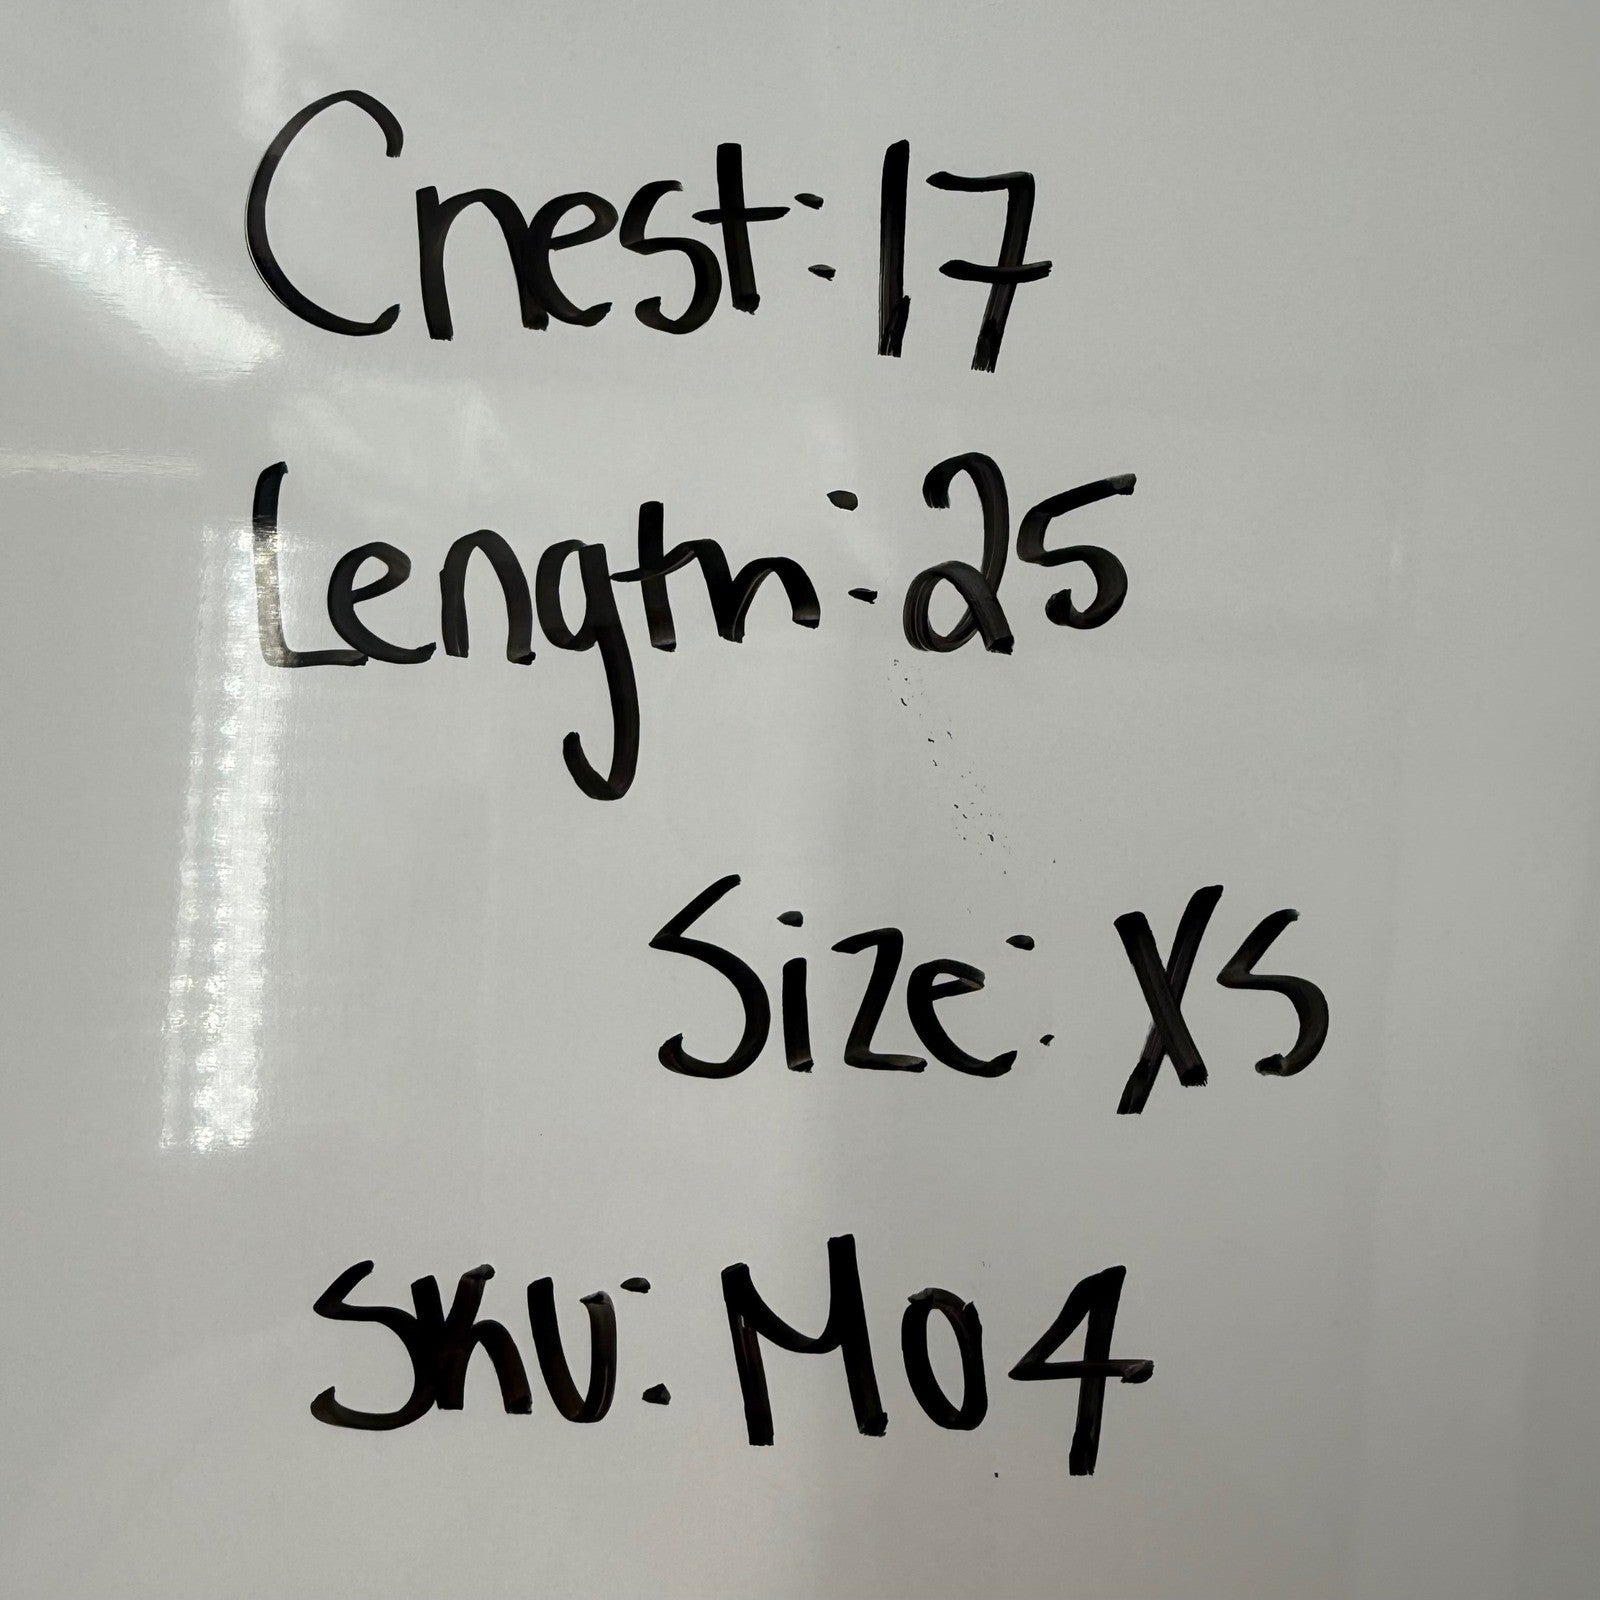 Chest: 17
Length: 25
Size: XS
SKU: M04